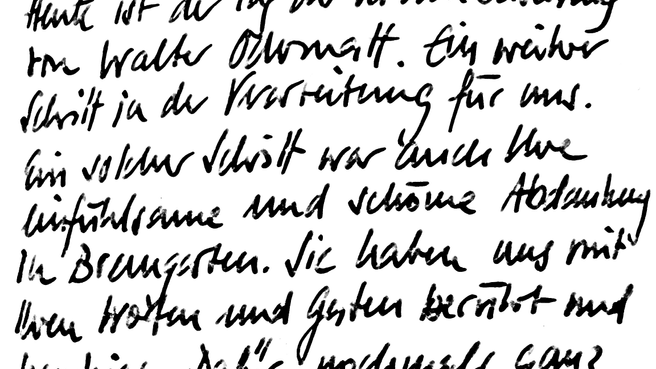 Heute ist der Tag der
von Walter Odermatt. Ein weiterer
Schritt in der Verarbeitung für uns.
Ein solcher Schritt war auch Ihre
einfühlsame und schöne Abdankung
in Bremgarten. Sie haben uns mit
Ihren Worten und Gesten berührt und
nochmals ganz